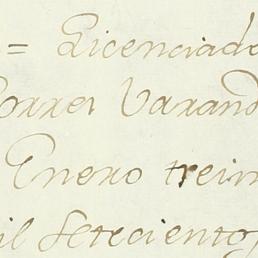 = Licenciado
Torres Varand
Enero trein
il setecientos